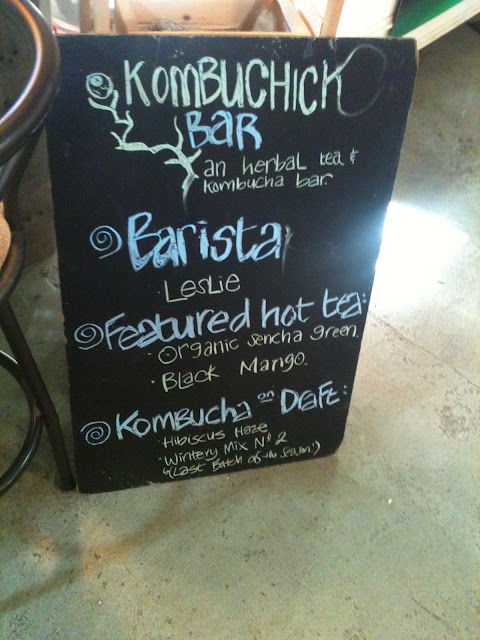 KOMBUCHICK
BAR
an herbal tea &
kombucha bar.
Barista
Leslie
Featured hot tea:
· Organic Sencha green.
· Black Mango.
Kombucha on Draft:
· Hibiscus Haze
· Wintery Mix Nº 2
(Last Batch of the season!)